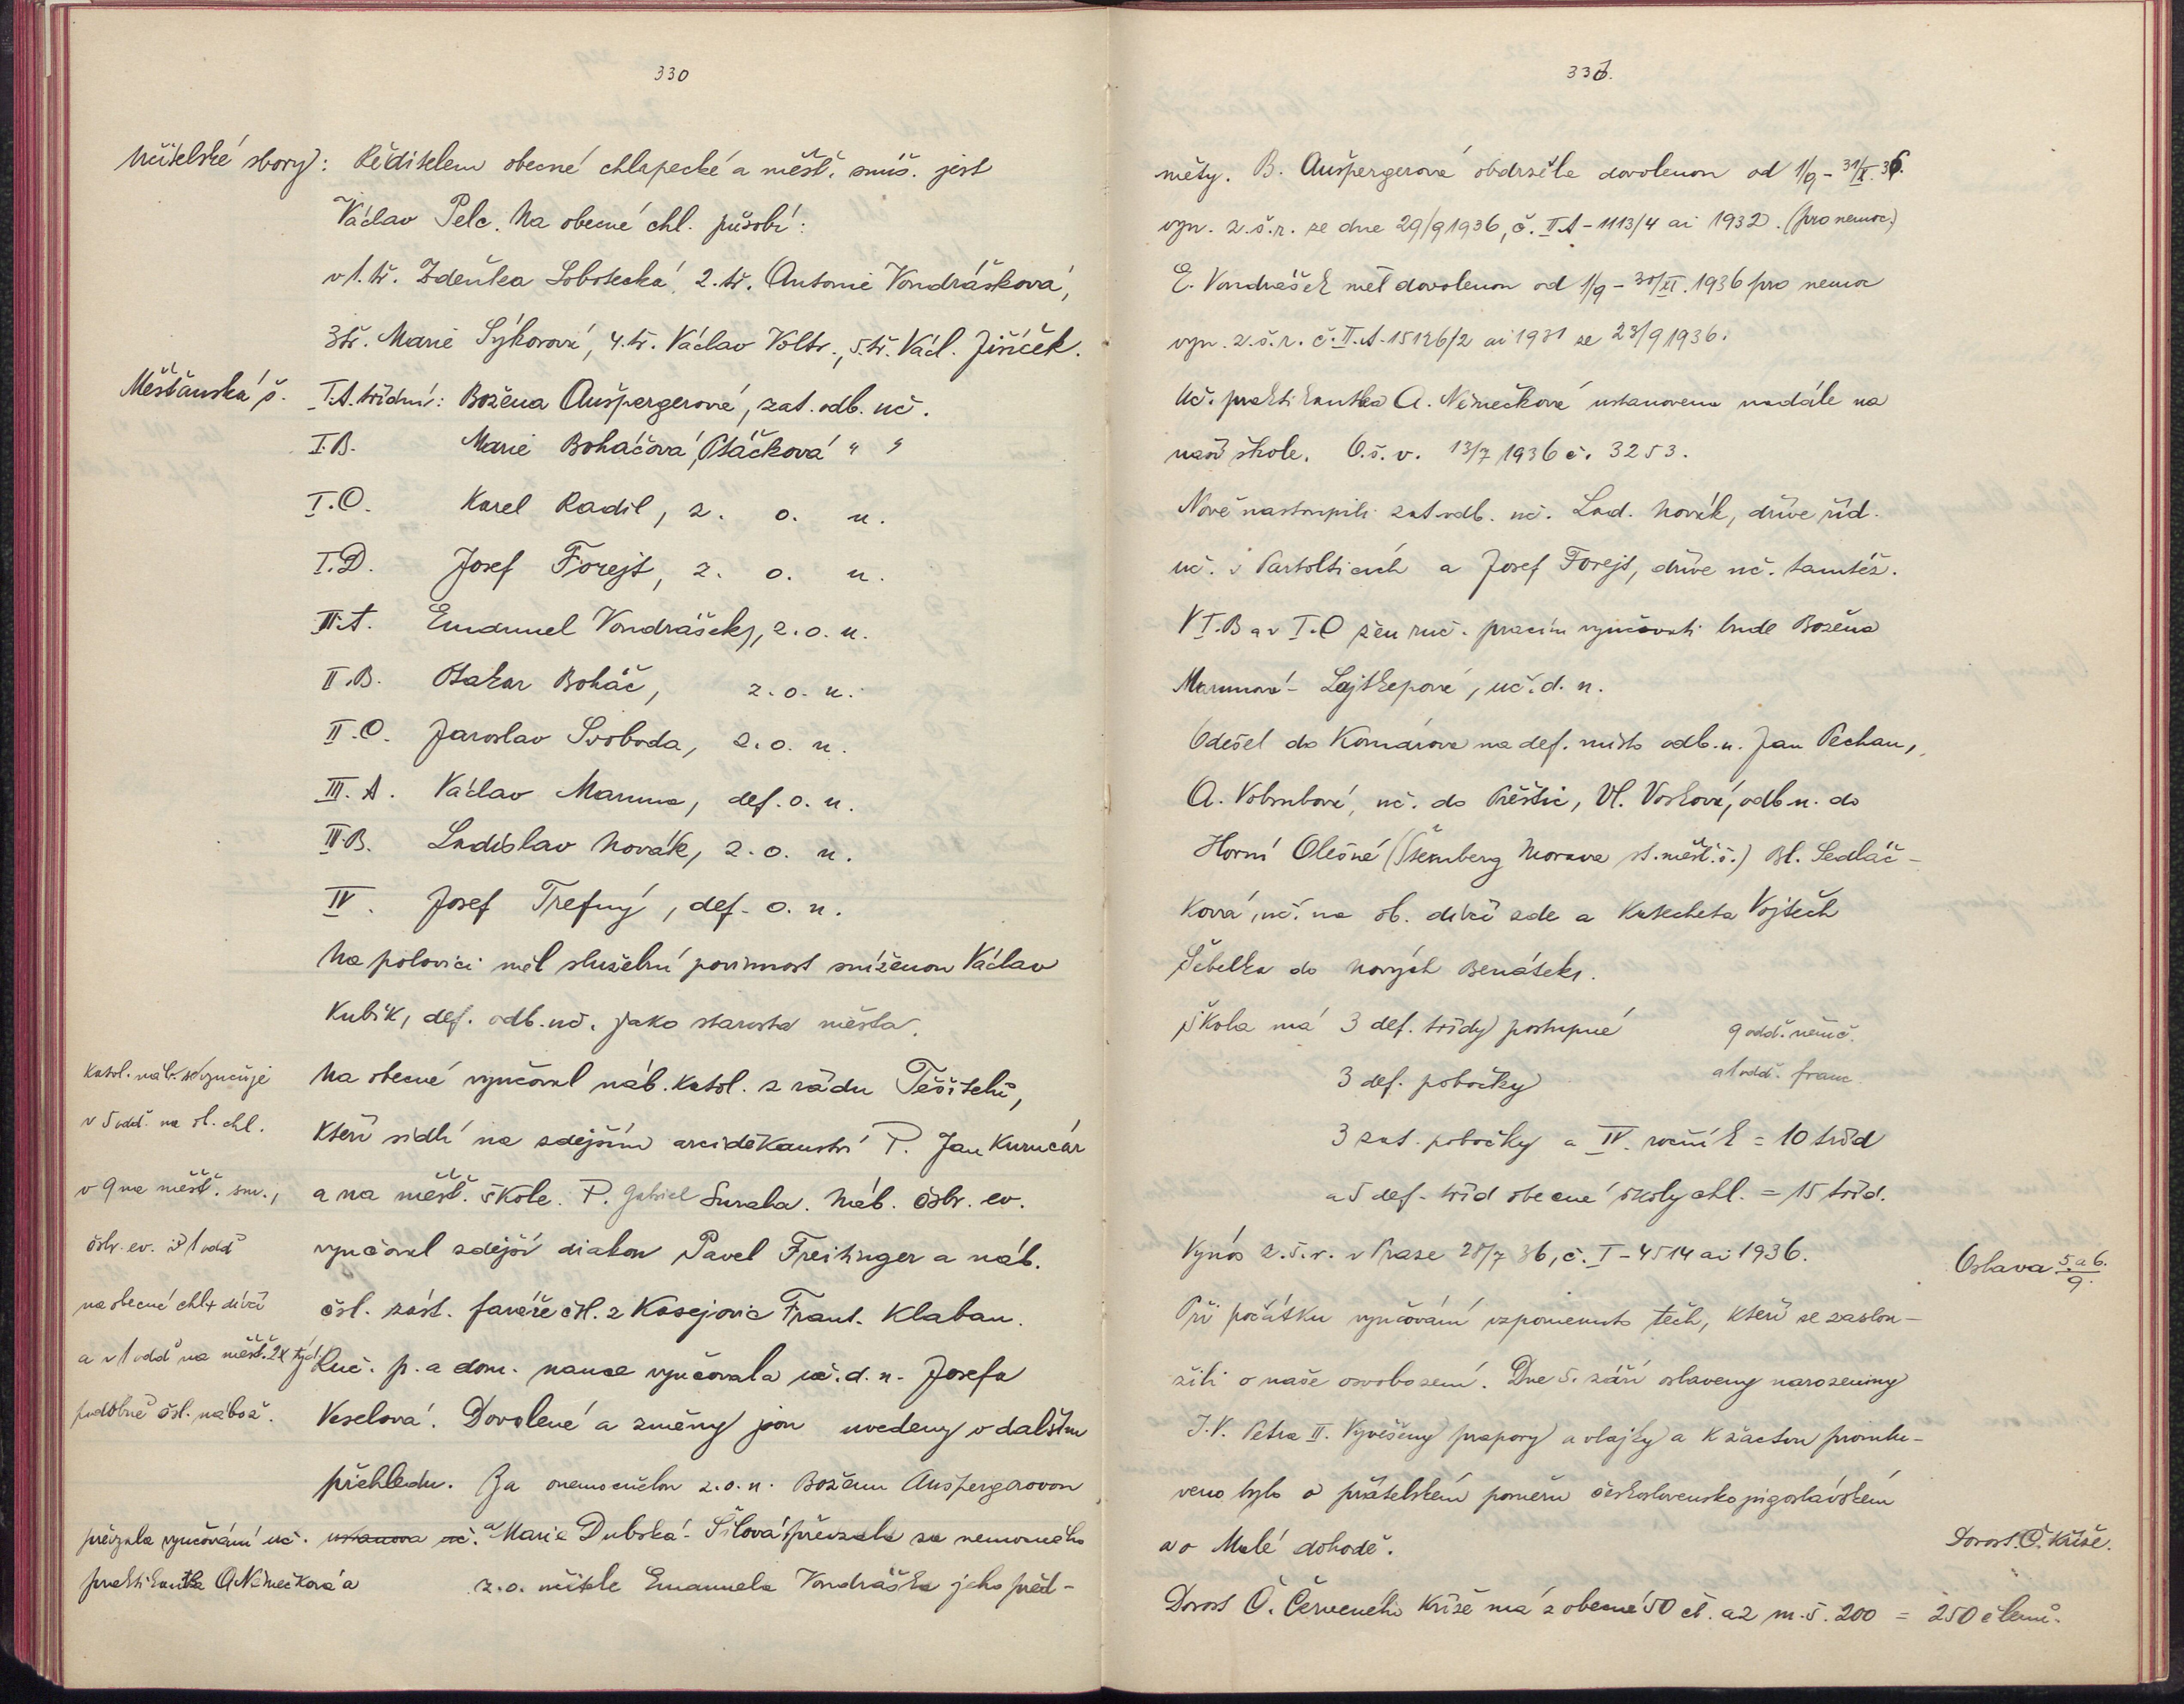 330
Učitelské sbory: Ředitelem obecné chlapecké a měšť. smíš. jest
Václav Pelc. Na obecné chl. působí:
v 1. tř. Zdeňka Sobotecká, 2. tř. Antonie Vondrášková,
3 tř. Marie Sýkorová, 4. tř. Václav Voltr., 5. tř. Václ. Jiříček.
Měšťanská š. I.A. třídní: Božena Aušpergerová, zat. odb. uč.
I.B. Marie Boháčová, Ptáčková " "
I.C. Karel Radil, z. o. u.
I.D. Josef Forejt, z. o. u.
II.A. Emanuel Vondrášek, z. o. u.
II.B. Otakar Boháč, z. o. u.
II.C. Jaroslav Svoboda, z. o. u.
III. A. Václav Maruna, def. o. u.
III.B. Ladislav Novák, z. o. u.
IV. Josef Trefný, def. o. u.
Na polovici měl služební povinnost sníženou Václav
Kubík, def. odb. uč. jako starosta města.
Na obecné vyučoval náb. katol. z řádu Těšitelů,
kteří sídlí na zdejším arciděkanství P. Jan Kurucár
a na měšť. škole. P. Gabriel Suraha. Náb. čsbr. ev.
vyučoval zdejší diakon Pavel Freitinger a náb.
čsl. zást. faráře čsl. z Kasejovic Frant. Klaban.
Ruč. p. a dom. nauce vyučovala uč. d. n. Josefa
Veselová. Dovolené a změny jsou uvedeny v dalším
přehledu. Za onemocnělou z. o. u. Boženu Aušpergerovou
převzala vyučování uč. ustanova uč. a Marie Dubská-Šílová převzala za nemocného
praktikantka A. Němečková a z. o. učitele Emanuela Vondráška jeho před-
katol. náb. se vyučuje
v 5 odd. na ob. chl.
v 9 na měšť. sm.,
čsbr. ev. v 1 odd
na obecné chl + dívčí
a v 1 odd na měšť. 2x týd.
podobně čsl. nábož.
331.
měty. B. Aušpergerová obdržela dovolenou od 1/9 - 31/X. 36.
výn. z. š. r. ze dne 29/9 1936, č. II.A - 1113/4 ai 1932. (pro nemoc.)
E. Vondrášek měl dovolenou od 1/9 - 30/XI. 1936 pro nemoc
výn. z. š. r. č. II. A. 15126/2 ai 1931 ze 23/9 1936.
Uč. praktikantka A. Němečková ustanovena nadále na
naší škole. O. š. v. 13/7 1936 č. 3253.
Nově nastoupili zat. odb. uč. Lad. Novák, dříve říd.
uč. v Partolticích a Josef Forejt, dříve uč. tamtéž.
V I.B a v I.C žen ruč. pracím vyučovati bude Božena
Marunová - Lajtkepová, uč. d. n.
Odešel do Komárova na def. místo odb. u. Jan Pechan,
A. Vobrubová, uč. do Přeštic, Vl. Vosková, odb u. do
Horní Olešné (Štemberg Morava st. měšť. š.) Bl. Sedláč-
ková, uč. na ob. dívčí zde a katecheta Vojtěch
Šebelka do Nových Benátek.
Škola má 3 def. třídy postupné 9 odd. němč.
3 def. pobočky a 1 odd. franc.
3 zat. pobočky a IV. ročník = 10 tříd
a 5 def. tříd obecné školy chl. = 15 tříd.
Výnos z. š. r. v Praze 28/7 36, č. I - 4514 ai 1936.
Oslava 5. a 6./9.
Při počátku vyučování vzpomenuto těch, kteří se zaslou-
žili o naše osvobození. Dne 5. září oslaveny narozeniny
J. V. Petra II. Vyvěšeny prapory a vlajky a k žactvu promlu-
veno bylo o přátelském poměru československo jugoslávském
a o Malé dohodě.
Dorost. Č. Kříže.
Dorost Č. Červeného kříže má z obecné 50 čl. a z m. š. 200 = 250 členů.